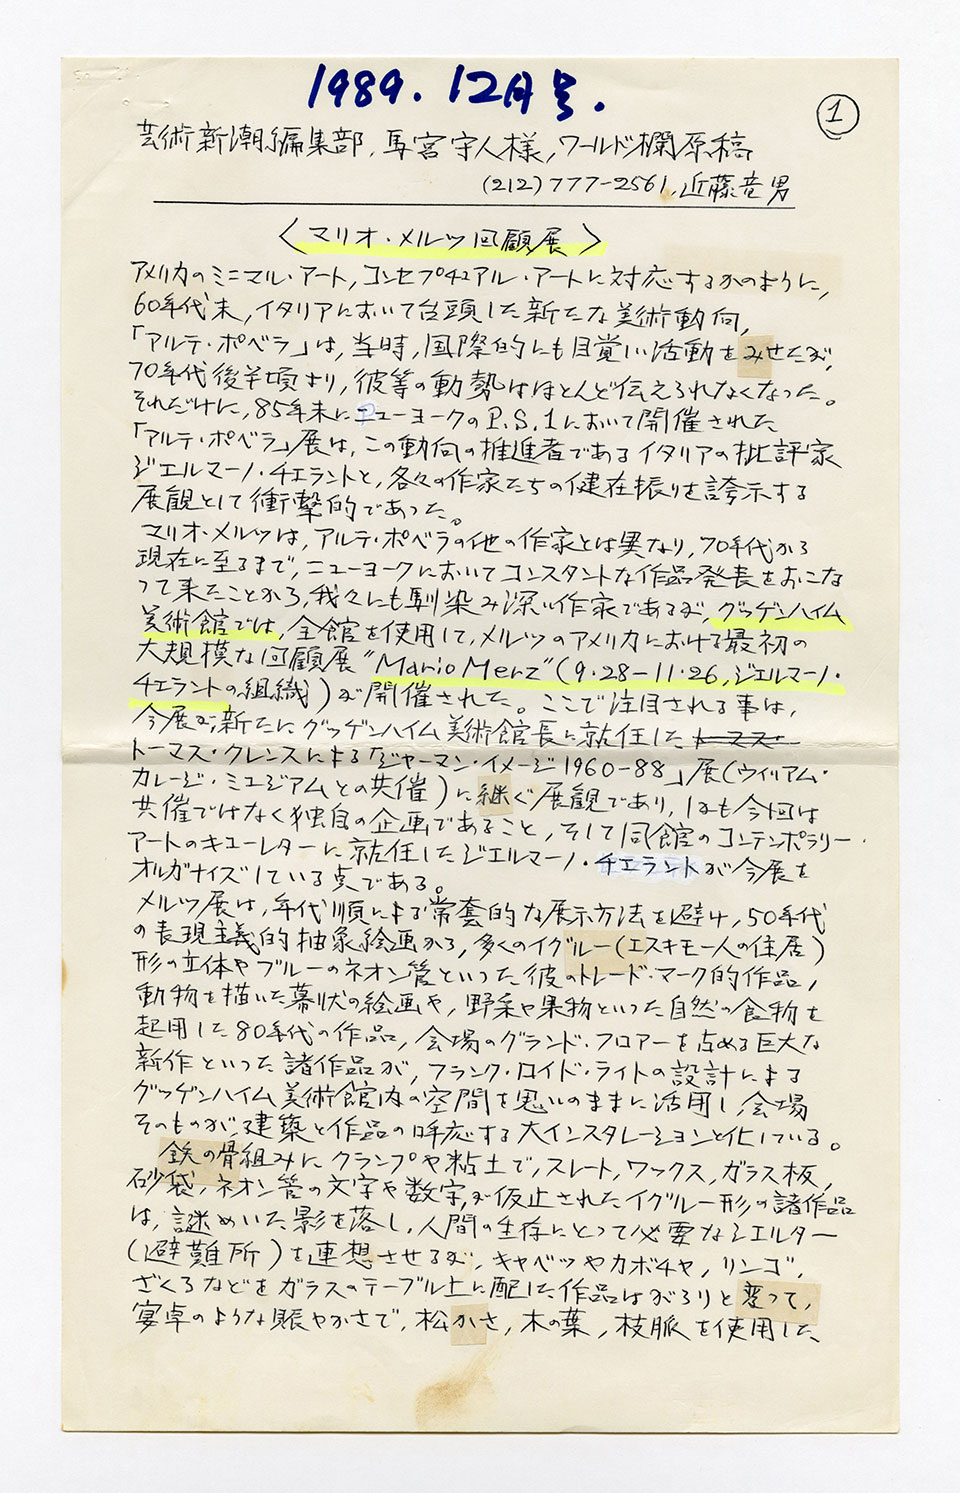 1989.12月号.
①
芸術新潮編集部,馬宮守人様,ワールド欄原稿
(212)777-2561,近藤竜男
〈マリオ・メルツ回顧展〉
アメリカのミニマル・アート,コンセプチュアル・アートに対応するかのように,
60年代末,イタリアにおいて台頭した新たな美術動向,
「アルテ・ポベラ」は,当時,国際的にも目覚しい活動をみせたが,
70年代後半頃より,彼等の動勢はほとんど伝えられなくなった。
それだけに,85年末にニューヨークのP.S.1において開催された
「アルテ・ポベラ」展は,この動向の推進者であるイタリアの批評家
ジエルマーノ・チエラントと,各々の作家たちの健在振りを誇示する
展観として衝撃的であった。
マリオ・メルツは,アルテ・ポベラの他の作家とは異なり,70年代から
現在に至るまで,ニューヨークにおいてコンスタントな作品発表をおこな
って来たことから,我々にも馴染み深い作家であるが,グッゲンハイム
美術館では,全館を使用して,メルツのアメリカにおける最初の
大規模な回顧展"Mario Merz"(9・28-11・26,ジエルマーノ・
チエラントの組織)が開催された。ここで注目される事は,
今展が,新たにグッゲンハイム美術館長に就任したトーマス・
トーマス・クレンスによる「ジャーマン・イメージ1960-88」展(ウイリアム・
カレージ・ミュジアムとの共催)に継ぐ展観であり,しかも今回は
共催ではなく独自の企画であること,そして同館のコンテンポラリー・
アートのキューレターに就任したジエルマーノ・チエラントが今展を
オルガナイズしている点である。
メルツ展は,年代順による常套的な展示方法を避け,50年代
の表現主義的抽象絵画から,多くのイグルー(エスキモー人の住居)
形の立体やブルーのネオン管といった彼のトレード・マーク的作品,
動物を描いた幕状の絵画や,野菜や果物といった自然の食物を
起用した80年代の作品,会場のグランド・フロアーを占める巨大な
新作といった諸作品が,フランク・ロイド・ライトの設計による
グッゲンハイム美術館内の空間を思いのままに活用し,会場
そのものが,建築と作品の呼応する大インスタレーションと化している。
鉄の骨組みにクランプや粘土で,スレート,ワックス,ガラス板,
砂袋,ネオン管の文字や数字,が仮止されたイグルー形の諸作品
は,謎めいた影を落し,人間の生存にとって必要なシエルター
(避難所)を連想させるが,キャベツやカボチャ,リンゴ,
ざくろなどをガラスのテーブル上に配した作品はがらりと変って,
宴卓のような賑やかさで,松かさ,木の葉,枝脈を使用した